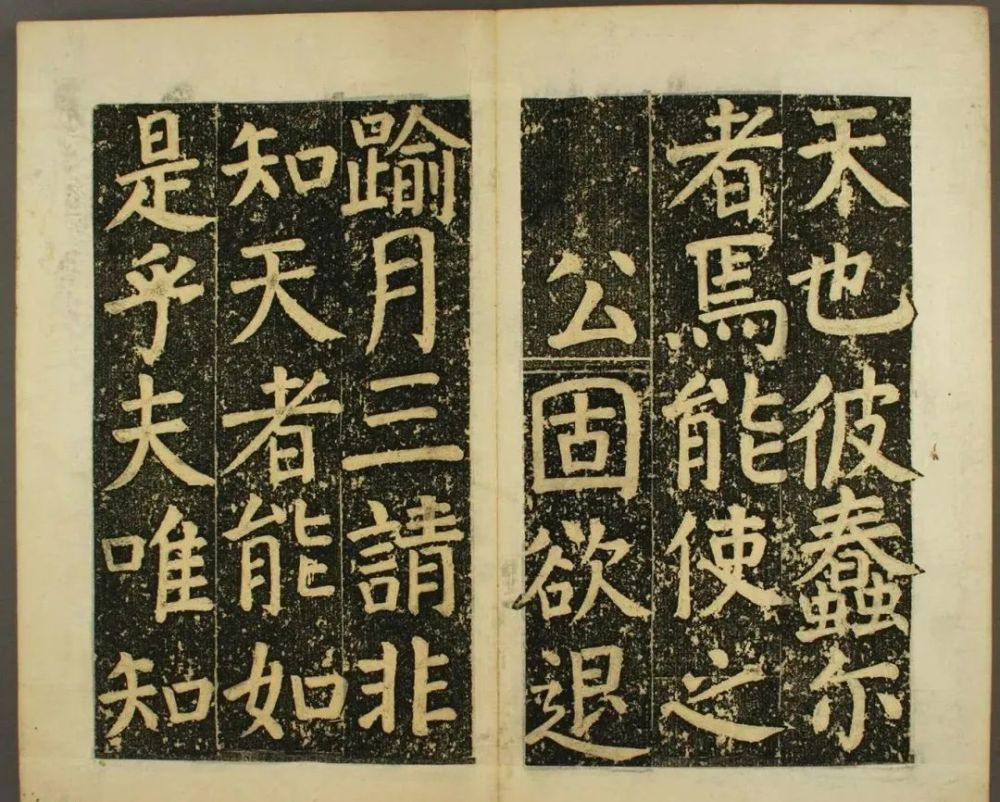 天也彼蠢尒
者焉能使之
公固欲退
踰月三請非
知天者能如
是乎夫唯知